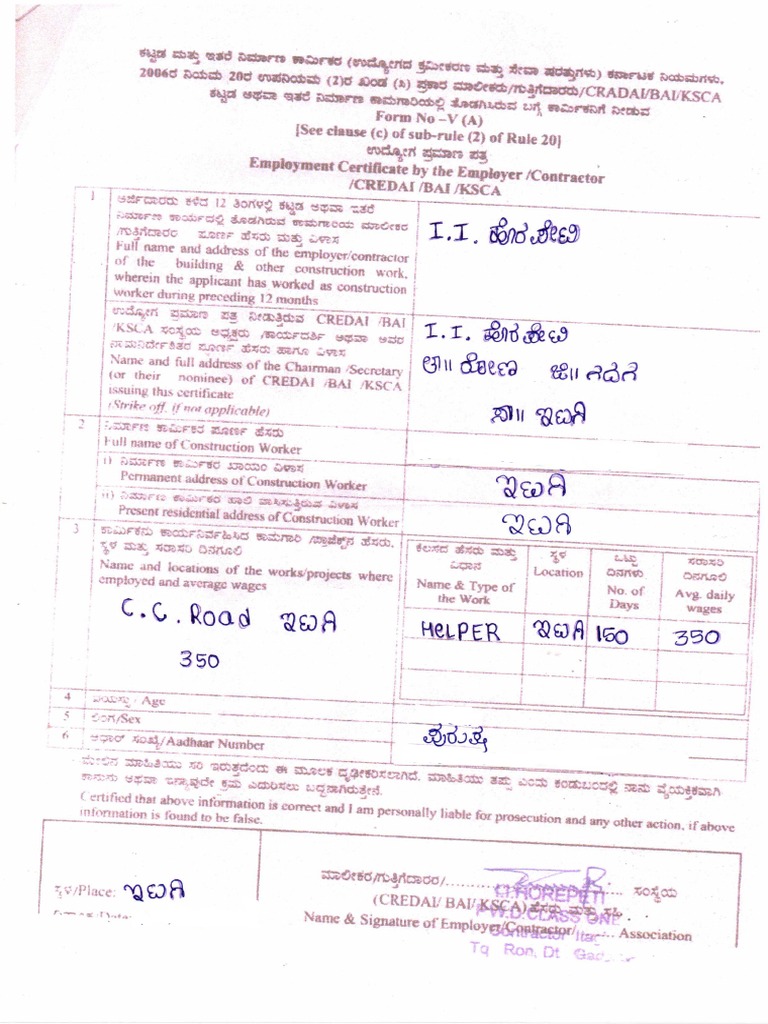 ಕಟ್ಟಡ ಮತ್ತು ಇತರೆ ನಿರ್ಮಾಣ ಕಾರ್ಮಿಕರ (ಉದ್ಯೋಗದ ಕ್ರಮೀಕರಣ ಮತ್ತು ಸೇವಾ ಷರತ್ತುಗಳು) ಕರ್ನಾಟಕ ನಿಯಮಗಳು,
2006ರ ನಿಯಮ 20ರ ಉಪನಿಯಮ (2)ರ ಖಂಡ (ಸಿ) ಪ್ರಕಾರ ಮಾಲೀಕರು/ಗುತ್ತಿಗೆದಾರರು/CRADAI/BAI/KSCA
ಕಟ್ಟಡ ಅಥವಾ ಇತರೆ ನಿರ್ಮಾಣ ಕಾಮಗಾರಿಯಲ್ಲಿ ತೊಡಗಿಸಿರುವ ಬಗ್ಗೆ ಕಾರ್ಮಿಕನಿಗೆ ನೀಡುವ
Form No –V (A)
[See clause (c) of sub-rule (2) of Rule 20]
ಉದ್ಯೋಗ ಪ್ರಮಾಣ ಪತ್ರ
Employment Certificate by the Employer /Contractor
/CREDAI /BAI /KSCA
1
ಅರ್ಜಿದಾರರು ಕಳೆದ 12 ತಿಂಗಳಲ್ಲಿ ಕಟ್ಟಡ ಅಥವಾ ಇತರೆ
ನಿರ್ಮಾಣ ಕಾರ್ಯದಲ್ಲಿ ತೊಡಗಿರುವ ಕಾಮಗಾರಿಯ ಮಾಲೀಕರ
/ಗುತ್ತಿಗೆದಾರರ ಪೂರ್ಣ ಹೆಸರು ಮತ್ತು ವಿಳಾಸ
Full name and address of the employer/contractor
of the building & other construction work,
wherein the applicant has worked as construction
worker during preceding 12 months
I.I. ಹೊರಪೇಟಿ
ಉದ್ಯೋಗ ಪ್ರಮಾಣ ಪತ್ರ ನೀಡುತ್ತಿರುವ CREDAI /BAI
/KSCA ಸಂಸ್ಥೆಯ ಅಧ್ಯಕ್ಷರು /ಕಾರ್ಯದರ್ಶಿ ಅಥವಾ ಅವರ
ನಾಮನಿರ್ದೇಶಿತರ ಪೂರ್ಣ ಹೆಸರು ಹಾಗೂ ವಿಳಾಸ
Name and full address of the Chairman /Secretary
(or their nominee) of CREDAI /BAI /KSCA
issuing this certificate
(Strike off, if not applicable)
I.I. ಹೊರಪೇಟಿ
ತಾ॥ ರೋಣ ಜಿ॥ ಗದಗ
ಸಾ॥ ಇಟಗಿ
2
ನಿರ್ಮಾಣ ಕಾರ್ಮಿಕರ ಪೂರ್ಣ ಹೆಸರು
Full name of Construction Worker
i) ನಿರ್ಮಾಣ ಕಾರ್ಮಿಕರ ಖಾಯಂ ವಿಳಾಸ
Permanent address of Construction Worker
ಇಟಗಿ
ii) ನಿರ್ಮಾಣ ಕಾರ್ಮಿಕರ ಹಾಲಿ ವಾಸಿಸುತ್ತಿರುವ ವಿಳಾಸ
Present residential address of Construction Worker
ಇಟಗಿ
3
ಕಾರ್ಮಿಕನು ಕಾರ್ಯನಿರ್ವಹಿಸಿದ ಕಾಮಗಾರಿ /ಪ್ರಾಜೆಕ್ಟ್‌ನ ಹೆಸರು,
ಸ್ಥಳ ಮತ್ತು ಸರಾಸರಿ ದಿನಗೂಲಿ
Name and locations of the works/projects where
employed and average wages
C.C. Road ಇಟಗಿ
350
ಕೆಲಸದ ಹೆಸರು ಮತ್ತು ವಿಧಾನ
Name & Type of the Work
ಸ್ಥಳ
Location
ಒಟ್ಟು ದಿನಗಳು
No. of Days
ಸರಾಸರಿ ದಿನಗೂಲಿ
Avg. daily wages
HELPER ಇಟಗಿ 150 350
4 ವಯಸ್ಸು / Age
5 ಲಿಂಗ/Sex
ಪುರುಷ
6 ಆಧಾರ್ ಸಂಖ್ಯೆ/Aadhaar Number
ಮೇಲಿನ ಮಾಹಿತಿಯು ಸರಿ ಇರುತ್ತದೆಂದು ಈ ಮೂಲಕ ದೃಢೀಕರಿಸಲಾಗಿದೆ. ಮಾಹಿತಿಯು ತಪ್ಪು ಎಂದು ಕಂಡುಬಂದಲ್ಲಿ ನಾನು ವೈಯಕ್ತಿಕವಾಗಿ
ಕಾನೂನು ಅಥವಾ ಇನ್ನಾವುದೇ ಕ್ರಮ ಎದುರಿಸಲು ಬದ್ಧನಾಗಿರುತ್ತೇನೆ.
Certified that above information is correct and I am personally liable for prosecution and any other action, if above
information is found to be false.
ಸ್ಥಳ/Place: ಇಟಗಿ
ಮಾಲೀಕರ/ಗುತ್ತಿಗೆದಾರರ/.......... ಸಂಸ್ಥೆಯ
(CREDAI/ BAI/ KSCA) ಹೆಸರು ಮತ್ತು ಸಹಿ
Name & Signature of Employer/Contractor/........ Association
I.I.HOREPETI
P.W.D.CLASS ONE
Contractor
Tq Ron, Dt